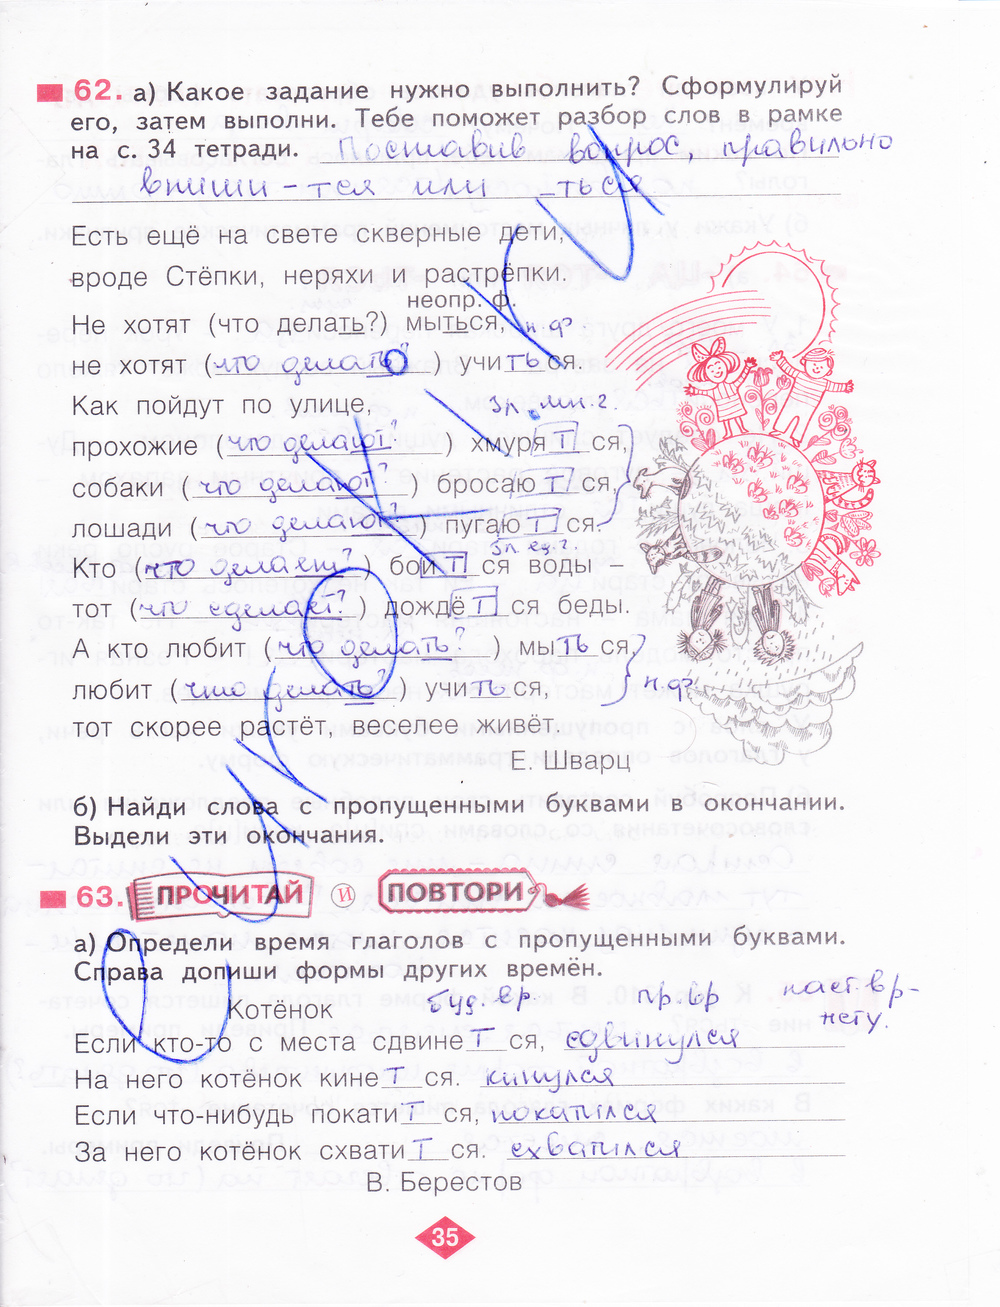 62. а) Какое задание нужно выполнить? Сформулируй
его, затем выполни. Тебе поможет разбор слов в рамке
на с. 34 тетради. Поставив вопрос, правильно
впиши -тся или ться
Есть ещё на свете скверные дети,
вроде Стёпки, неряхи и растрёпки.
неопр. ф.
Не хотят (что делать?) мыться, н.ф?
не хотят (что делать?) учиться.
Как пойдут по улице, 3л. мн.ч.
прохожие (что делают?) хмурятся,
собаки (что делают?) бросаются,
лошади (что делают?) пугаются.
3л ед.ч.
Кто (что делает?) боится воды –
тот (что сделает?) дождётся беды.
А кто любит (что делать?) мыться,
любит (что делать?) учиться, н.ф?
тот скорее растёт, веселее живёт.
Е. Шварц
б) Найди слова с пропущенными буквами в окончании.
Выдели эти окончания.
63. ПРОЧИТАЙ И ПОВТОРИ
а) Определи время глаголов с пропущенными буквами.
Справа допиши формы других времён.
Котёнок буд. вр. пр. вр наст. вр-
нету.
Если кто-то с места сдвинется, сдвинулся
На него котёнок кинется. кинулся
Если что-нибудь покатится, покатился
За него котёнок схватится. схватился
В. Берестов
35